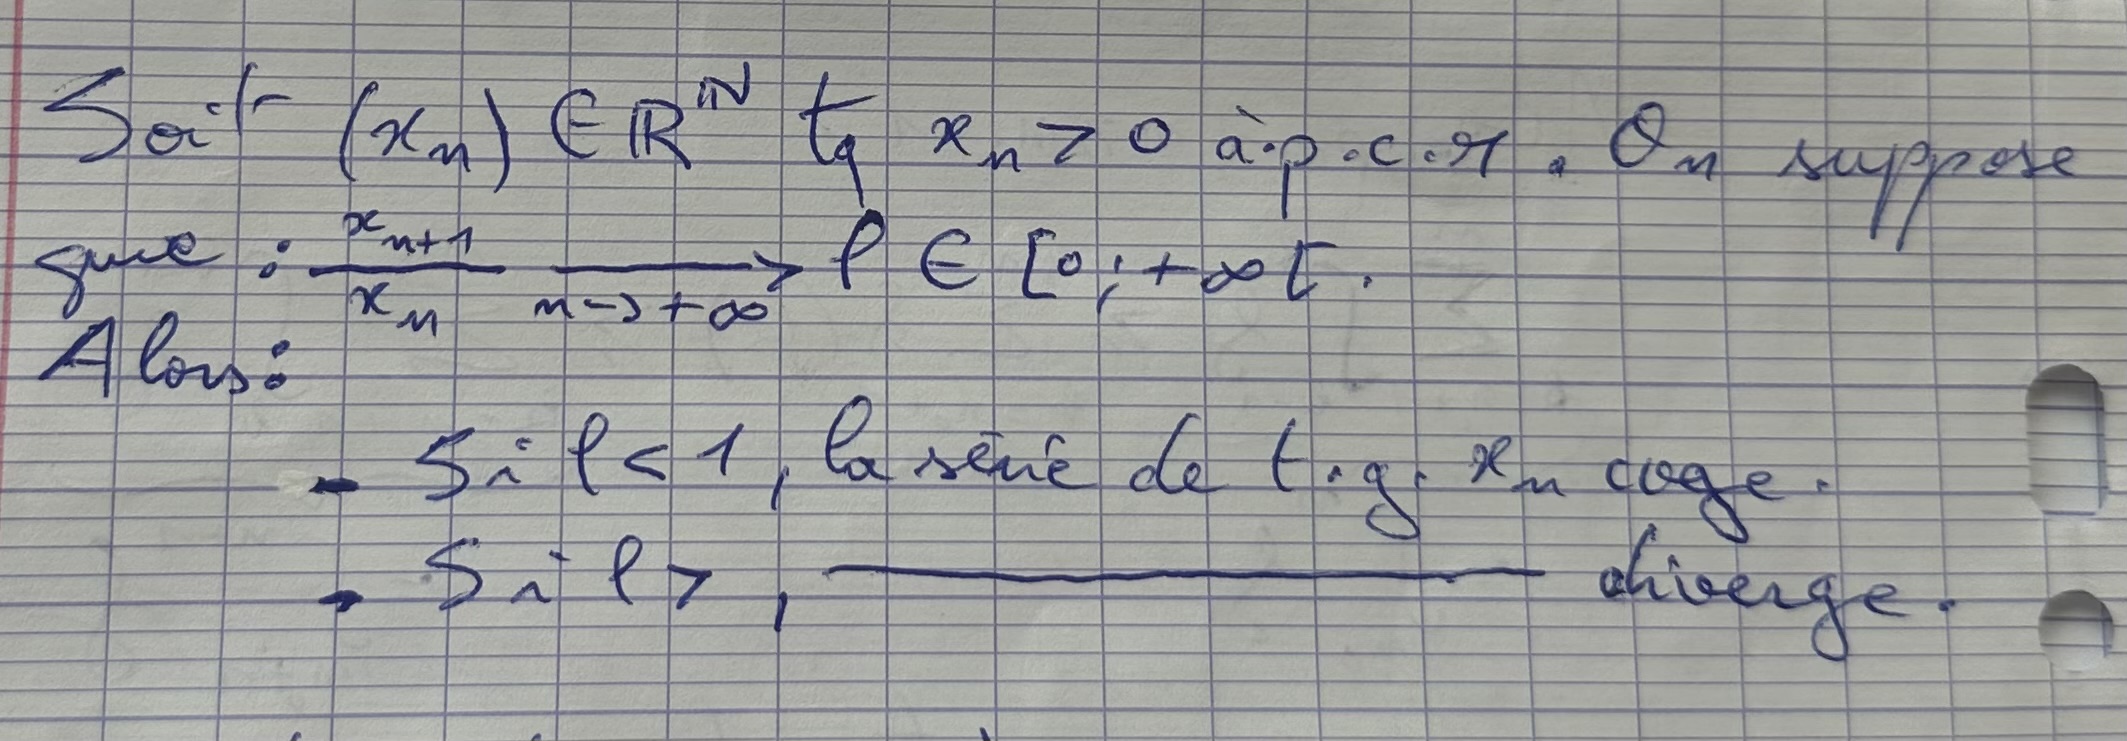 Soit (xₙ) ∈ ℝ^ℕ tq xₙ > 0 à.p.c.r. On suppose
que : xₙ₊₁/xₙ ⟶ (n→+∞) ℓ ∈ [0;+∞[.
Alors :
- Si ℓ < 1, la série de t.g. xₙ cvge.
- Si ℓ > , ———————— diverge.